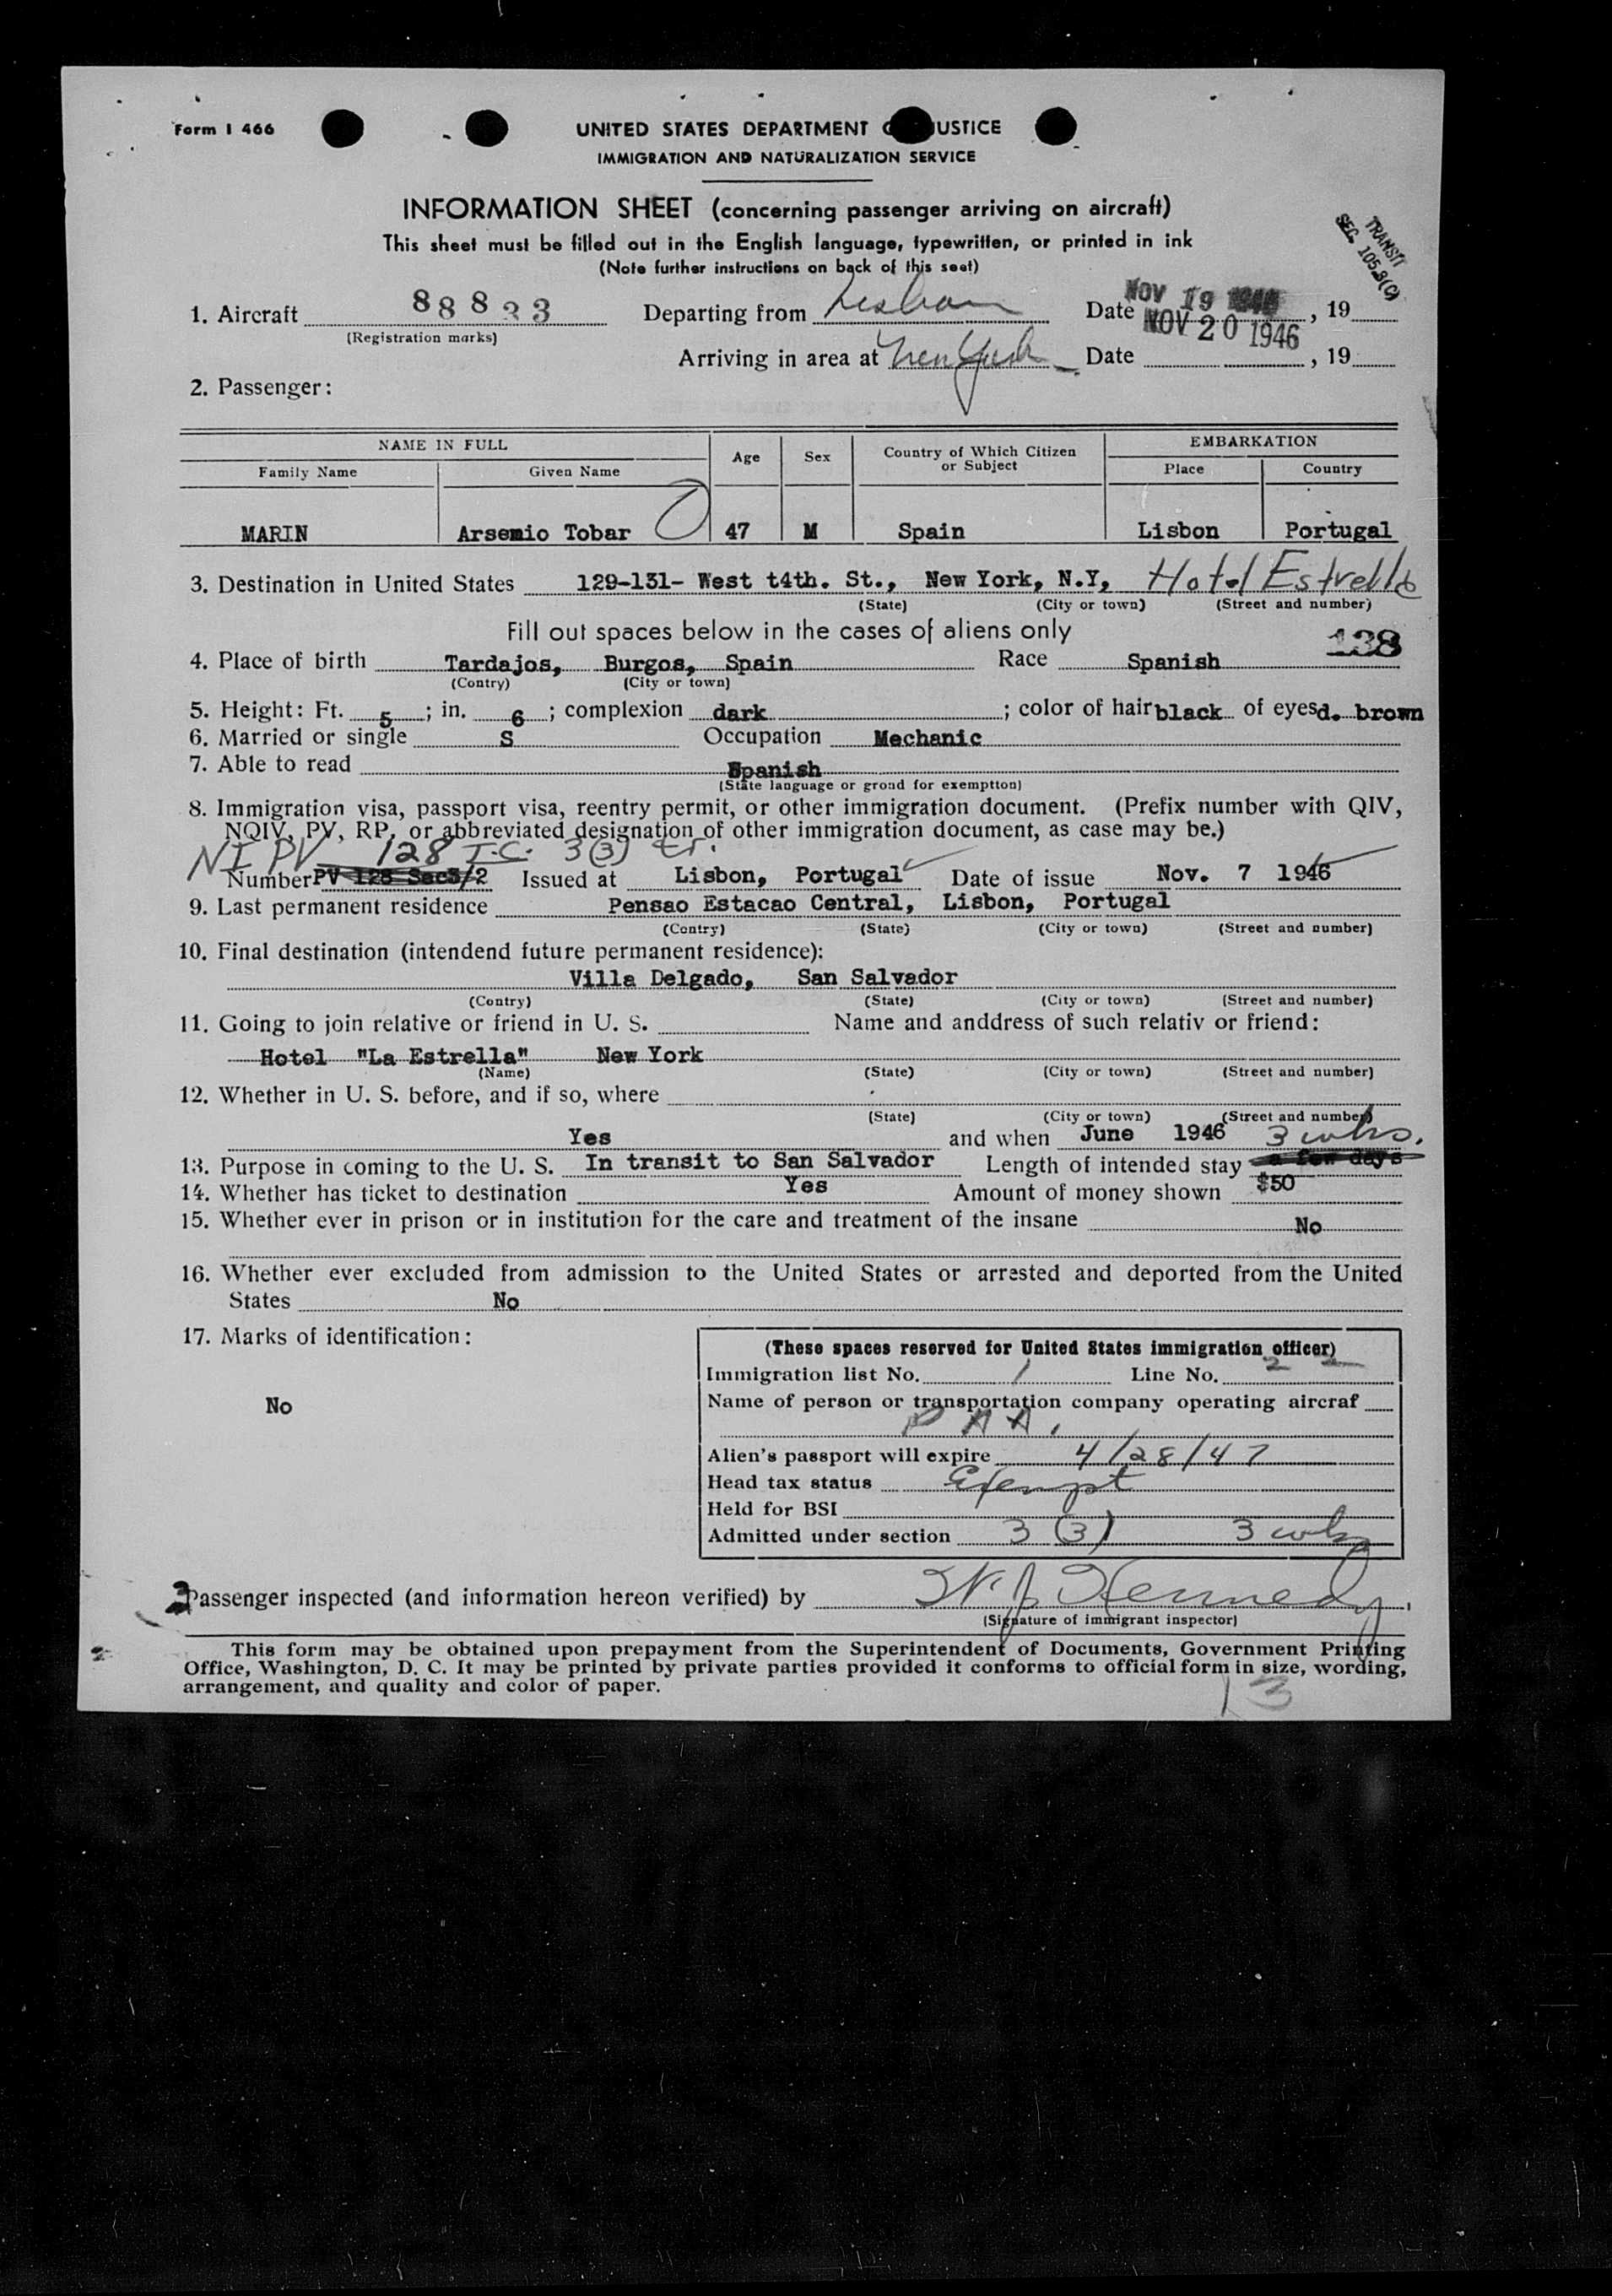 Form I 466
UNITED STATES DEPARTMENT USTICE
IMMIGRATION AND NATURALIZATION SERVICE
INFORMATION SHEET (concerning passenger arriving on aircraft)
This sheet must be filled out in the English language, typewritten, or printed in ink
(Note further instructions on back of this seet)
TRANSIT
SEC. 105.3(C)
1. Aircraft 88833 Departing from Lisbon Date NOV 19 1946, 19
(Registration marks) NOV 20 1946
Arriving in area at New York Date , 19
2. Passenger:
NAME IN FULL Age Sex Country of Which Citizen or Subject EMBARKATION
Family Name Given Name Place Country
MARIN Arsemio Tobar 47 M Spain Lisbon Portugal
3. Destination in United States 129-131- West t4th. St., New York, N.Y, Hotel Estrella
(State) (City or town) (Street and number)
Fill out spaces below in the cases of aliens only 138
4. Place of birth Tardajos, Burgos, Spain Race Spanish
(Contry) (City or town)
5. Height: Ft. 5; in. 6; complexion dark; color of hair black of eyes d. brown
6. Married or single S Occupation Mechanic
7. Able to read Spanish
(State language or grond for exemption)
8. Immigration visa, passport visa, reentry permit, or other immigration document. (Prefix number with QIV,
NQIV, PV, RP, or abbreviated designation of other immigration document, as case may be.)
NI PV 128 I.C. 3(3)
Number PV 128 Sec3/2 Issued at Lisbon, Portugal Date of issue Nov. 7 1946
9. Last permanent residence Pensao Estacao Central, Lisbon, Portugal
(Contry) (State) (City or town) (Street and number)
10. Final destination (intendend future permanent residence):
Villa Delgado, San Salvador
(Contry) (State) (City or town) (Street and number)
11. Going to join relative or friend in U. S. Name and anddress of such relativ or friend:
Hotel "La Estrella" New York
(Name) (State) (City or town) (Street and number)
12. Whether in U. S. before, and if so, where
(State) (City or town) (Street and number)
Yes and when June 1946 3 wks.
13. Purpose in coming to the U. S. In transit to San Salvador Length of intended stay a few days
14. Whether has ticket to destination Yes Amount of money shown $50
15. Whether ever in prison or in institution for the care and treatment of the insane No
16. Whether ever excluded from admission to the United States or arrested and deported from the United
States No
17. Marks of identification:
No
(These spaces reserved for United States immigration officer)
Immigration list No. 1 Line No. 2
Name of person or transportation company operating aircraf
P A A.
Alien's passport will expire 4/28/47
Head tax status Exempt
Held for BSI
Admitted under section 3 (3) 3 wks
Passenger inspected (and information hereon verified) by W. J. Kennedy
(Signature of immigrant inspector)
This form may be obtained upon prepayment from the Superintendent of Documents, Government Printing
Office, Washington, D. C. It may be printed by private parties provided it conforms to official form in size, wording,
arrangement, and quality and color of paper.
13